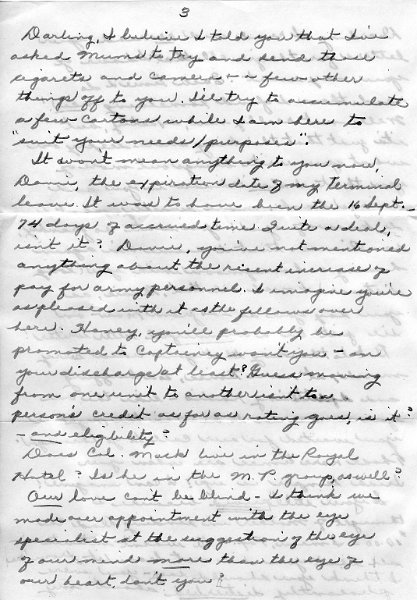 3
Darling, I believe I told you that I've
asked Mums to try and send those
cigarets and camera - a few other
things off to you. I'll try to accumulate
a few cartons while I am here to
"suit your needs/purposes".
It won't mean anything to you now,
the expiration date of my terminal
leave. It was to have been the 16 Sept. -
74 days of accrued time. Quite a deal,
isn't it? you've not mentioned
anything about the recent increase of
pay for army personnel. I imagine you're
as pleased with it as the fellows over
here. Honey, you'll probably be
promoted to Captaincy won't you - on
your discharge at least? Guess moving
from one unit to another isn't to a
person's credit as far as rating goes, is it?
- and eligibility?
Does Col. Mack live in the Royal
Hotel? Is he in the M.P. group, as well?
Our love can't be blind - I think we
made our appointment with the eye
specialist at the suggestion of the eye
of our mind more than the eye of
our heart, don't you?